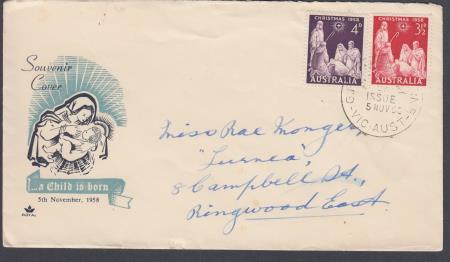 Souvenir
Cover
CHRISTMAS 1958
4D
AUSTRALIA
CHRISTMAS 1958
3½D
AUSTRALIA
ISSUE
5 NOV 58
VIC-AUST
...a Child is born
5th November, 1958
ROYAL
Miss Rae Monger,
"Lurnea",
8 Campbell St.,
Ringwood East